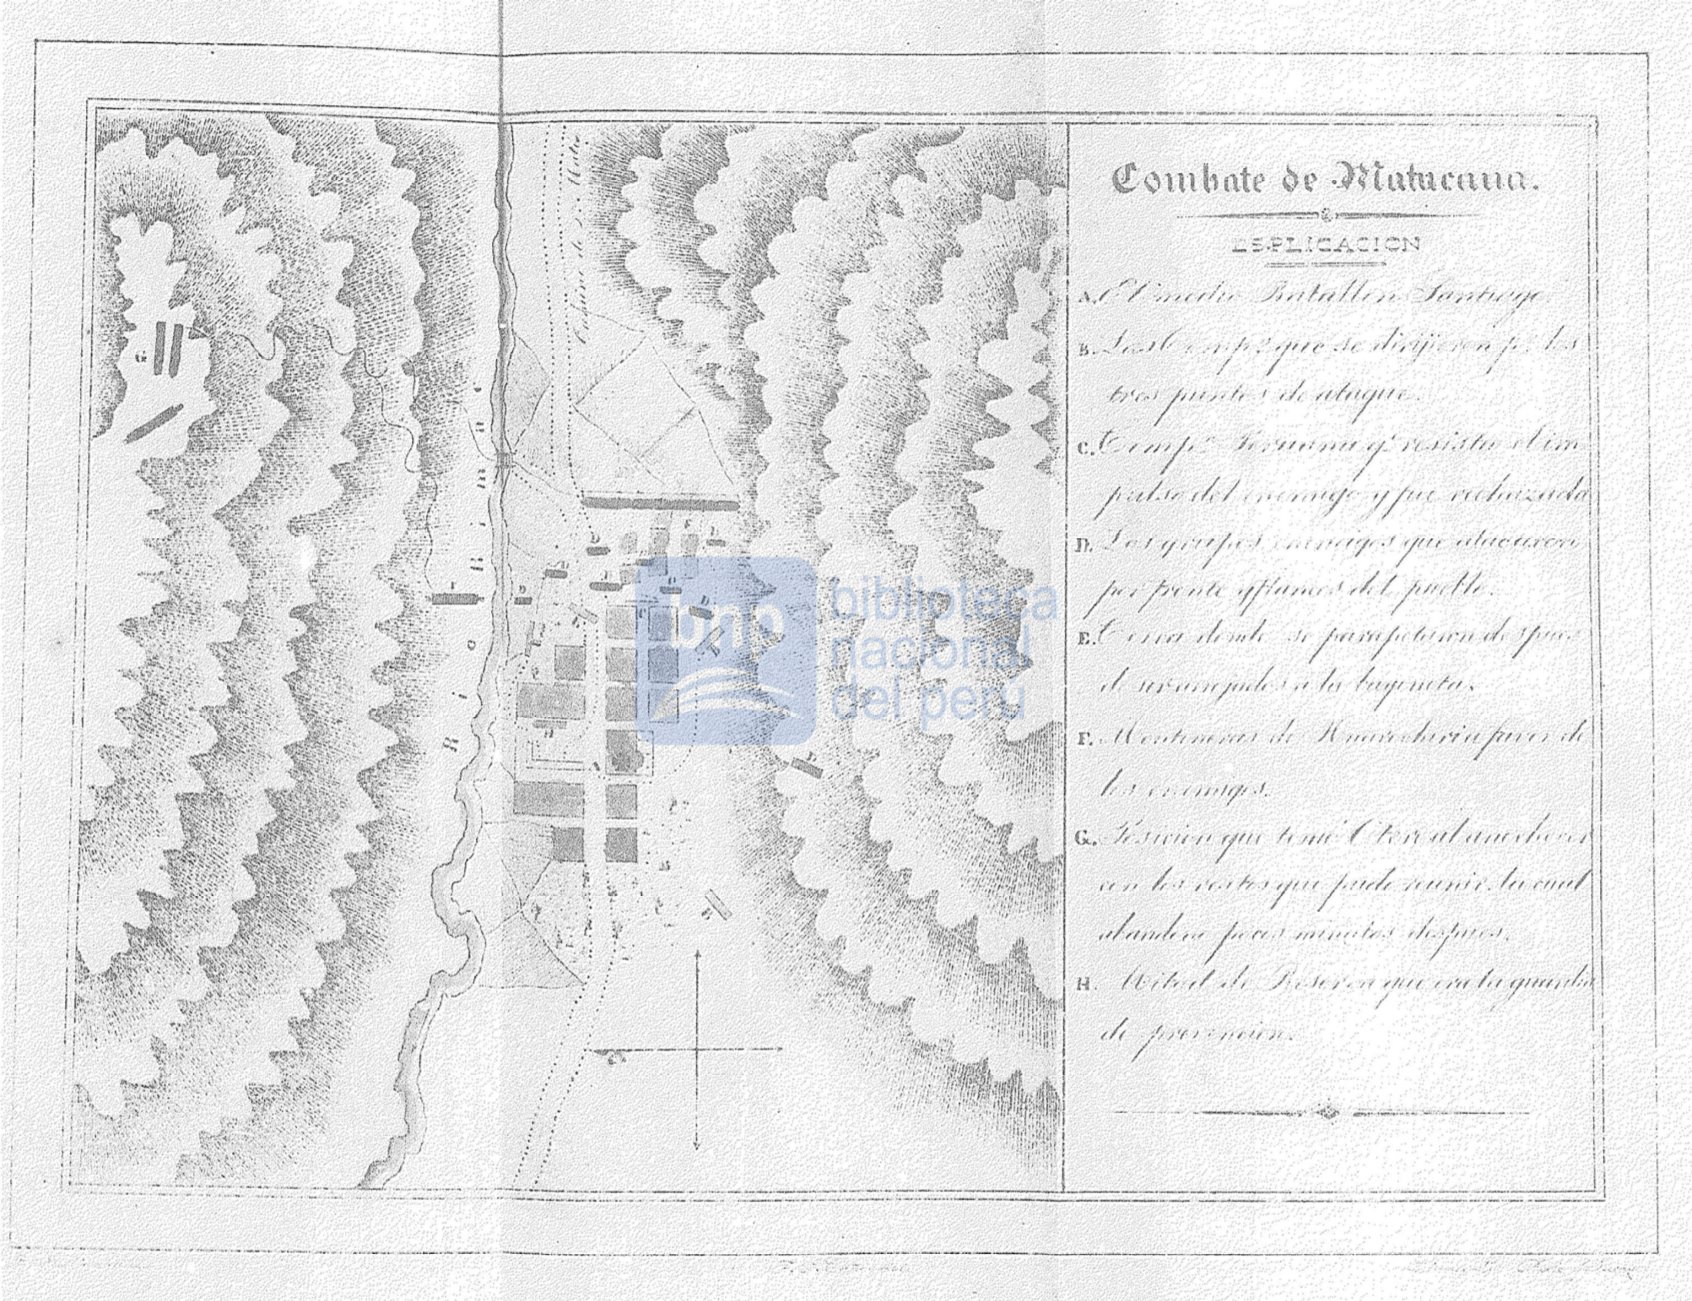 Combate de Matucana.
ESPLICACION
A. El medio Batallon Santiago
B. Las Comp.s que se dirijieron p.r los
tres puntos de ataque.
C. Comp.a Peruana q.e resistio el im
pulso del enemigo y fue rechazada
D. Los grupos enemigos que atacaron
por frente y flancos del pueblo.
E. Cerca donde se parapetaron despues
de ser arrojados a la bayoneta.
F. Montoneras de Huarochirin
los enemigos.
G. Posicion que tomó Otero al anochecer
con los restos que pudo reunir, la cual
abandono pocos minutos despues.
H. Mitad de Reserva que era la guardia
de prevencion.
Camino de Sn. Mateo
Rio Rimac
G
F
D
D
D
D
D
C
C
E
H
F
B
bnp
biblioteca
nacional
del perú